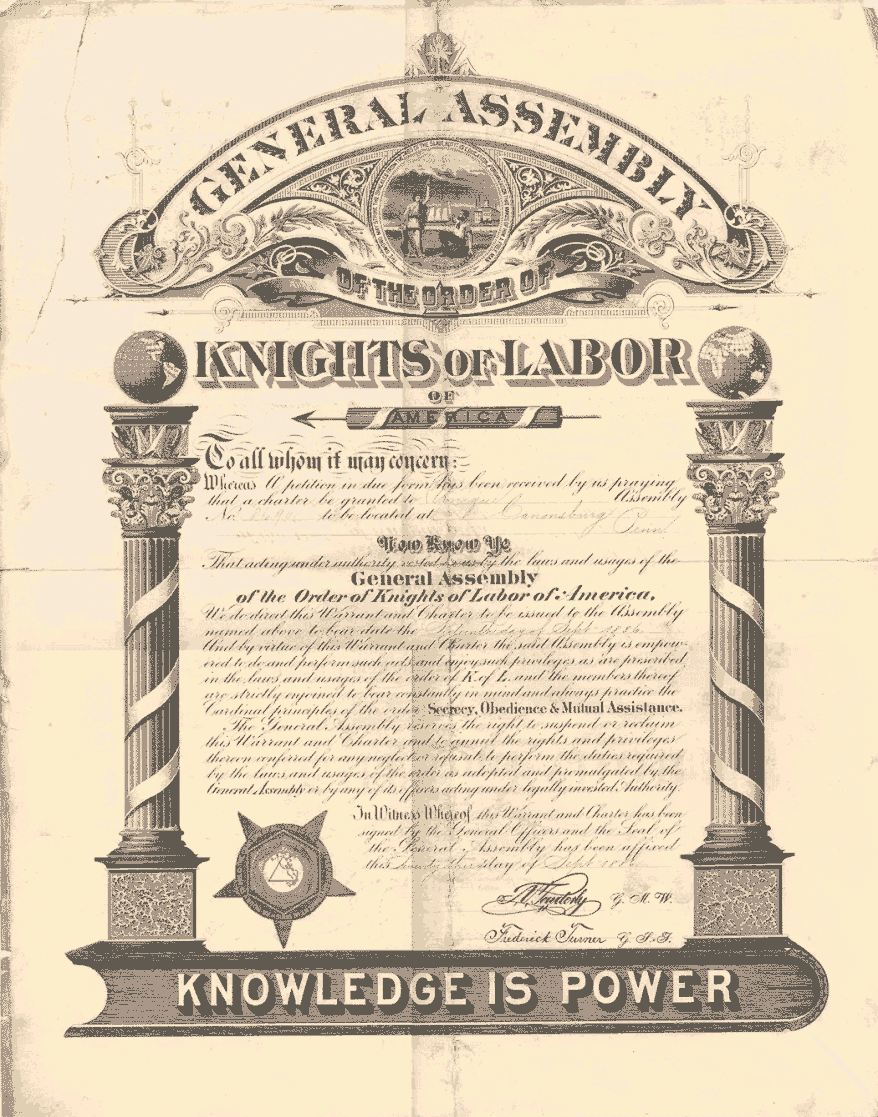 GENERAL ASSEMBLY
OF THE ORDER OF
KNIGHTS OF LABOR
OF
AMERICA
To all whom it may concern:
Whereas A petition in due form has been received by us praying
that a charter be granted to Assembly
No. to be located at Canonsburg Penn
Now Know Ye
That acting under authority vested in us by the laws and usages of the
General Assembly
of the Order of Knights of Labor of America,
We do direct this Warrant and Charter to be issued to the Assembly
named above to bear date the day of Sept 1886
And by virtue of this Warrant and Charter the said Assembly is empow-
ered to do and perform such acts and enjoy such privileges as are prescribed
in the laws and usages of the order of K. of L. and the members thereof
are strictly enjoined to bear constantly in mind and always practice the
Cardinal principles of the order Secrecy, Obedience & Mutual Assistance.
The General Assembly reserves the right to suspend or reclaim
this Warrant and Charter and to annul the rights and privileges
therein conferred for any neglect or refusal to perform the duties required
by the laws and usages of the order as adopted and promulgated by the
General Assembly or by any of its officers acting under legally invested Authority.
In Witness Whereof this Warrant and Charter has been
signed by the General Officers and the Seal of
the General Assembly has been affixed
this day of Sept
T. V. Powderly G. M. W.
Frederick Turner G. S. T.
KNOWLEDGE IS POWER